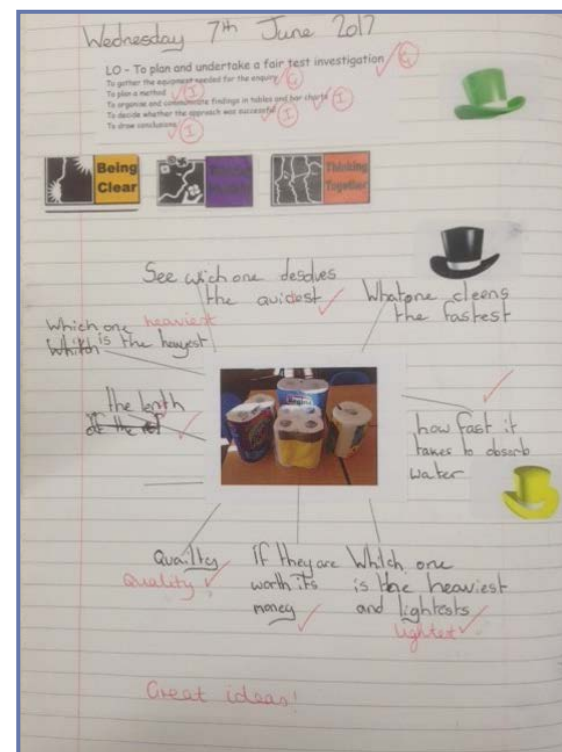 Wednesday 7th June 2017
LO - To plan and undertake a fair test investigation G
To gather the equipment needed for the enquiry G
To plan a method I
To organise and communicate findings in tables and bar charts I
To decide whether the approach was successful I
To draw conclusions I
Being
Clear
Thinking
Together
See wich one desolves
the quidest
What one cleens
the fastest
Which one heaviest
Which is the heavyest
the lenth
of the rol
how fast it
takes to absorb
water
Quailtey
Quality
if they are
worth its
money
Which one
is the heaviest
and lightests
lightest
Great ideas!